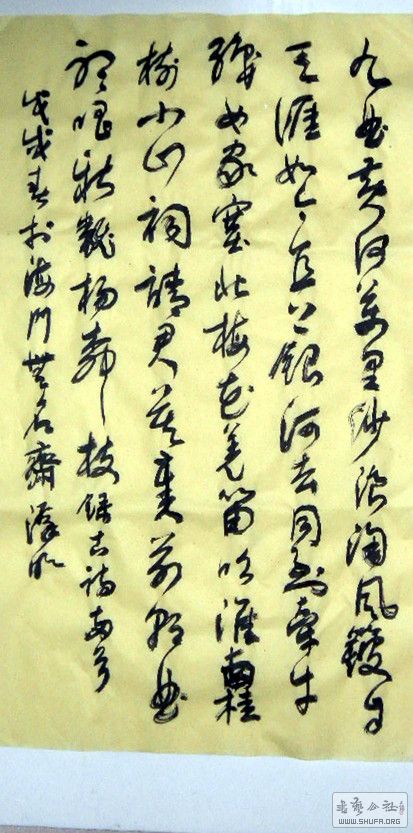 九曲黄河萬里沙浪淘风簸自
天涯如今直上银河去同到牵牛
織女家塞北梅花羌笛吹淮南桂
树小山祠請君莫奏前朝曲
听唱新翻杨柳枝録古詩两首
戊戌春於海门無名齋
书艺公社
WWW.SHUFA.ORG